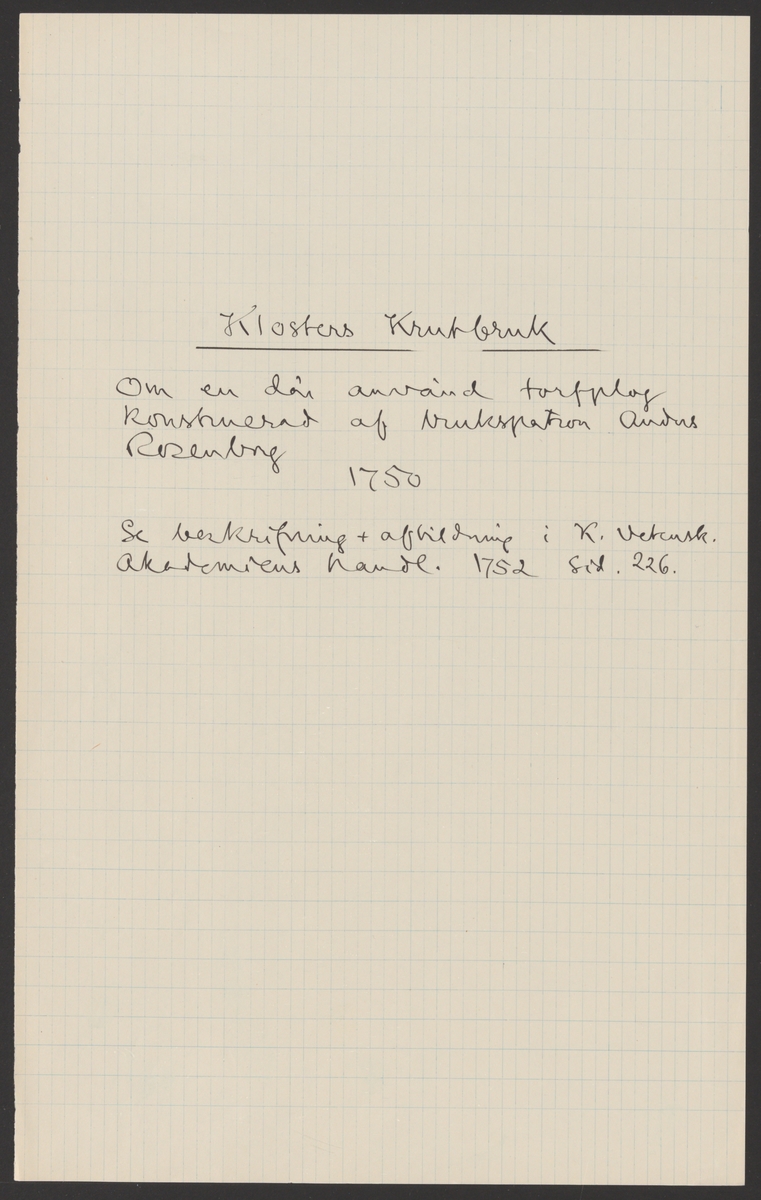 Klosters Krutbruk
Om en där använd torfplog
Konstruerad af brukspatron Anders
Rosenborg
1750
Se beskrifning + afbildning i K. Vetensk.
Akademiens handl. 1752 Sid. 226.